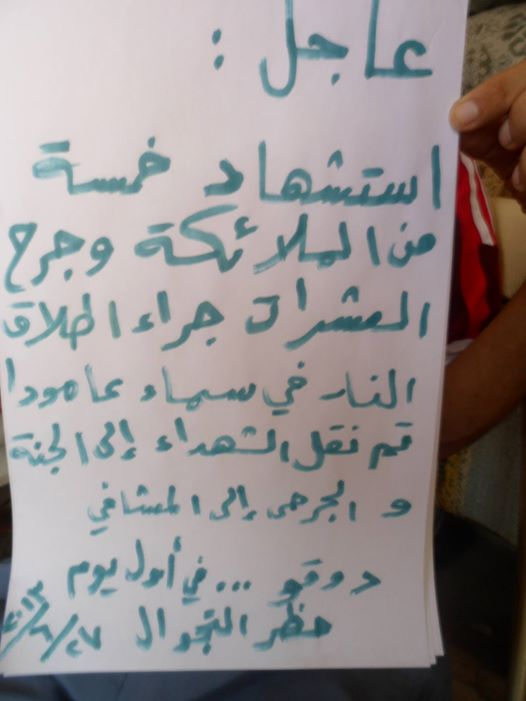 عاجل :
استشهاد خمسة
من الملائكة وجرح
العشرات جراء اطلاق
النار في سماء عامودا
تم نقل الشهداء إلى الجنة
و الجرحى إلى المشافي
دوقو ... في أول يوم
حظر التجوال